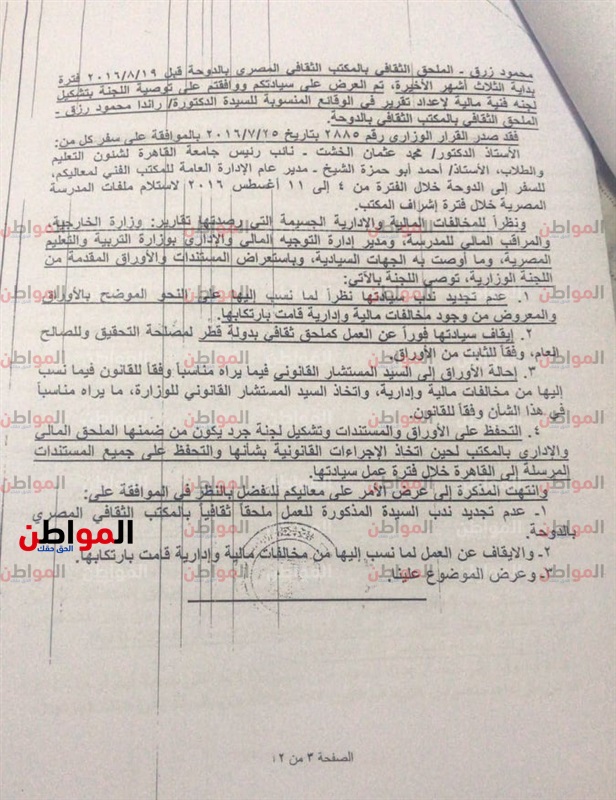 محمود رزق - الملحق الثقافي بالمكتب الثقافي المصري بالدوحة قبل ٢٠١٦/٨/١٩ فترة
بداية الثلاث أشهر الأخيرة، تم العرض على سيادتكم ووافقتم على توصية اللجنة بتشكيل
لجنه فنية مالية لإعداد تقرير في الوقائع المنسوبة للسيدة الدكتورة/ راندا محمود رزق -
الملحق الثقافي بالمكتب الثقافي بالدوحة.
فقد صدر القرار الوزاري رقم ٢٨٨٥ بتاريخ ٢٠١٦/٧/٢٥ بالموافقة على سفر كل من:
الأستاذ الدكتور/ محمد عثمان الخشت - نائب رئيس جامعة القاهرة لشئون التعليم
والطلاب، الأستاذ/ أحمد أبو حمزة الشيخ - مدير عام الإدارة العامة للمكتب الفني لمعاليكم،
للسفر إلى الدوحة خلال الفترة من ٤ إلى ١١ أغسطس ٢٠١٦ لاستلام ملفات المدرسة
المصرية خلال فترة إشراف المكتب.
ونظراً للمخالفات المالية والإدارية الجسيمة التي رصدتها تقارير: وزارة الخارجية،
والمراقب المالي للمدرسة، ومدير إدارة التوجيه المالي والإداري بوزارة التربية والتعليم
المصرية، وما أوصت به الجهات السيادية، وباستعراض المستندات والأوراق المقدمة من
اللجنة الوزارية، توصي اللجنة بالآتي:
١. عدم تجديد ندب سيادتها نظراً لما نسب إليها على النحو الموضح بالأوراق
والمعروض من وجود مخالفات مالية وإدارية قامت بارتكابها.
٢. إيقاف سيادتها فوراً عن العمل كملحق ثقافي بدولة قطر لمصلحة التحقيق وللصالح
العام، وفقاً للثابت من الأوراق.
٣. إحالة الأوراق إلى السيد المستشار القانوني فيما يراه مناسباً وفقاً للقانون فيما نسب
إليها من مخالفات مالية وإدارية، واتخاذ السيد المستشار القانوني للوزارة، ما يراه مناسباً
في هذا الشأن وفقاً للقانون.
٤. التحفظ على الأوراق والمستندات وتشكيل لجنة جرد يكون من ضمنها الملحق المالي
والإداري بالمكتب لحين اتخاذ الإجراءات القانونية بشأنها والتحفظ على جميع المستندات
المرسلة إلى القاهرة خلال فترة عمل سيادتها.
وانتهت المذكرة إلى عرض الأمر على معاليكم للتفضل بالنظر في الموافقة على:
١- عدم تجديد ندب السيدة المذكورة للعمل ملحقاً ثقافياً بالمكتب الثقافي المصري
بالدوحة.
٢- والإيقاف عن العمل لما نسب إليها من مخالفات مالية وإدارية قامت بارتكابها.
٣- وعرض الموضوع علينا.
المواطن
الحق حقك
الصفحة ٣ من ١٢